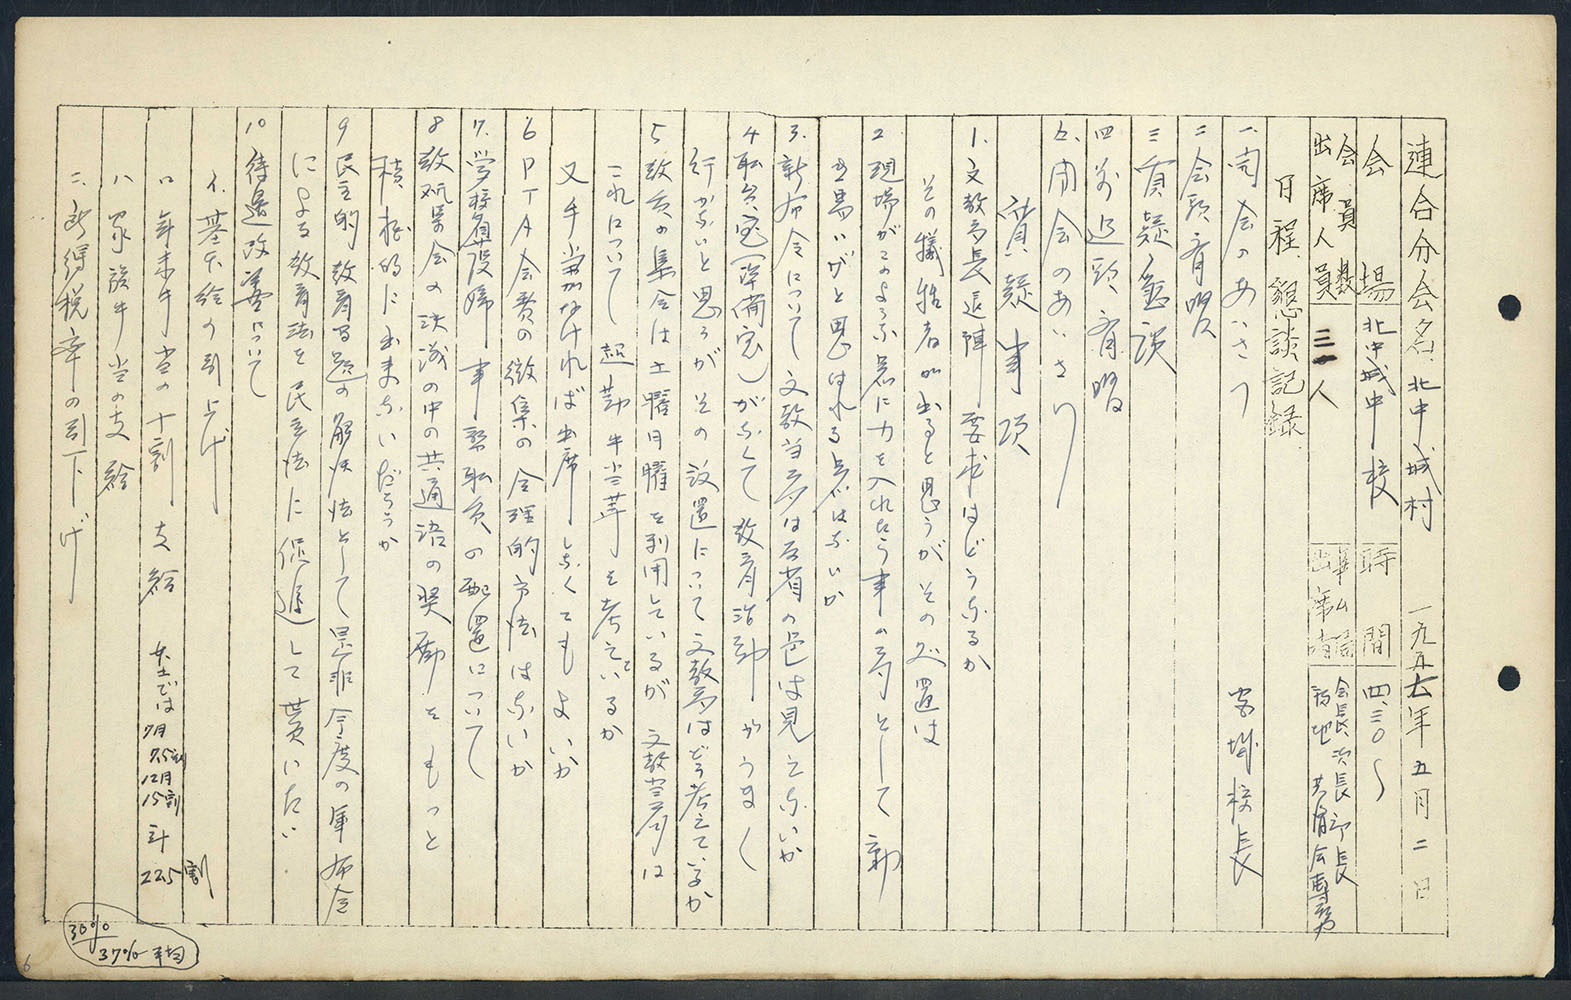 連合分会名 北中城村 一九五七年五月二日
会場 北中城中校 時間 四、三〇〜
会員数
出席人員 三一人 出席
会長、次長、部長
共済会専務
日程 懇談記録
一、開会のあいさつ 宮城校長
二 会頭 有賀
三 質疑懇談
四
五、閉会のあいさつ
質疑事項
1. 文教部長退陣要求はどうなるか
その犠牲者が出ると思うがその処置は
2 現場がこのような忍に力を入れたう事の
馬いげと思はれる点はないか
3. 新布令について文教当局は反省の色は見えないか
4 転員室(準備室)がなくて教育活動がうまく
行かないと思うがその設置について文教部はどう考えているか
5 教員の集会は土曜日曜を利用しているが文教当局は
これについて超勤手当等を考えているか
又手当がなければ出席しなくてもよいか
6 PTA会費の徴集の合理的方法はないか
7. 学校看護婦 事務職員の配置について
8 教研集会の決議の中の共通語の奨励をもっと
積極的に出来ないだろうか
9 民主的教育問題の解決法として是非今度の軍布令
による教育法を民立法に促進して貰いたい
10 待遇改善について
イ. 基本給の引上げ
ロ 年末手当の十割支給 本土では 7月 7.5割 12月 15割 計 22.5割
ハ 家族手当の支給
ニ、所得税率の引下げ
30%
37% 平均
6